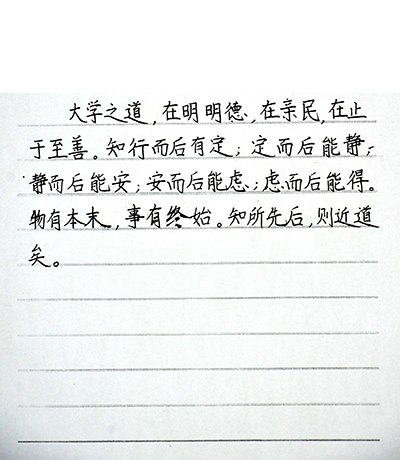 大学之道,在明明德,在亲民,在止
于至善。知行而后有定;定而后能静;
静而后能安;安而后能虑;虑而后能得。
物有本末,事有终始。知所先后,则近道
矣。